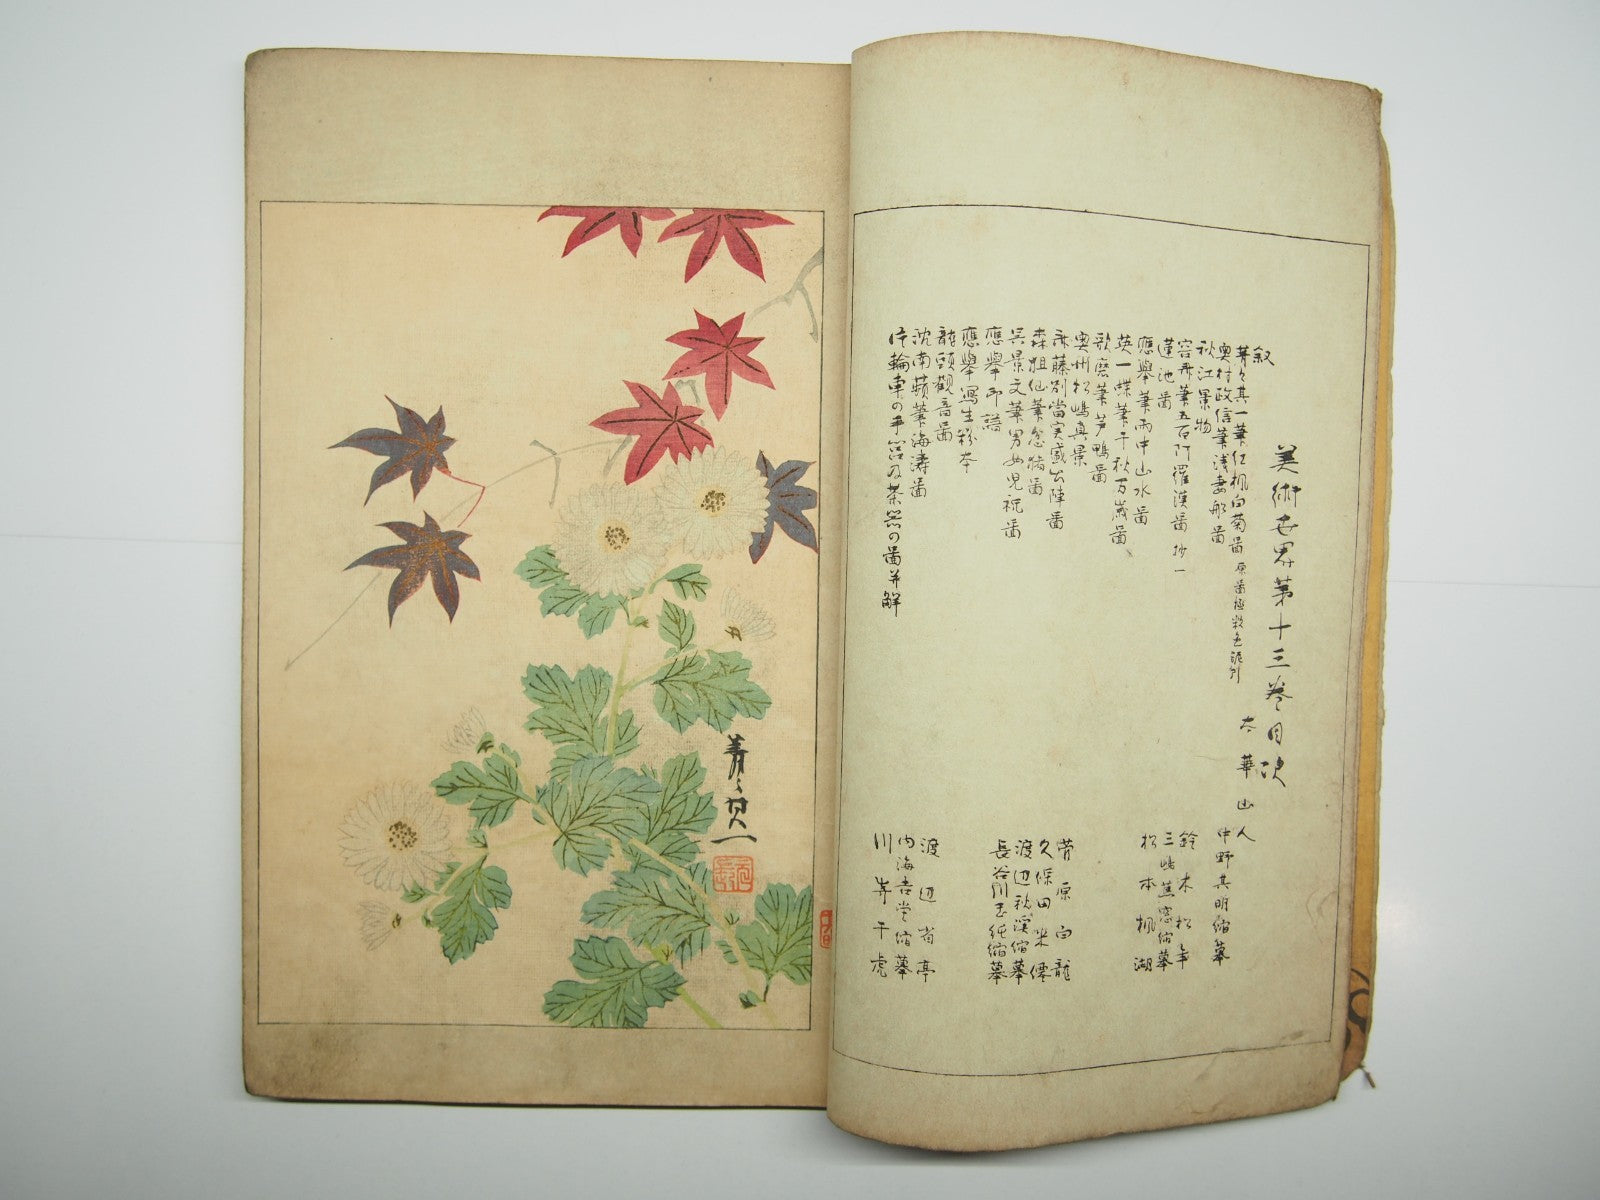 美術世界第十三巻目次
叙
太華山人
菁々其一筆紅楓白菊圖 原圖極彩色
中野其明縮摹
奥村政信筆浅妻船圖
秋江景物
鈴木松年
容斎筆五百阿羅漢圖 抄一
三嶋蕉窓縮摹
蓮池圖
松本楓湖
應擧筆雨中山水圖
英一蝶筆千秋万歳圖
歌麿筆芦鴨圖
奥州松嶋真景
斎藤別當実盛出陣圖
菅原白龍
森狙仙筆怒猪圖
久保田米僊
呉景文筆男女児祝圖
渡辺秋渓縮摹
應擧印譜
長谷川玉純縮摹
應擧寫生粉本
龍頭觀音圖
渡辺省亭
沈南蘋筆海濤圖
内海吉堂縮摹
片輪車の手筥及茶器の圖并解
川嵜千虎
菁々其一